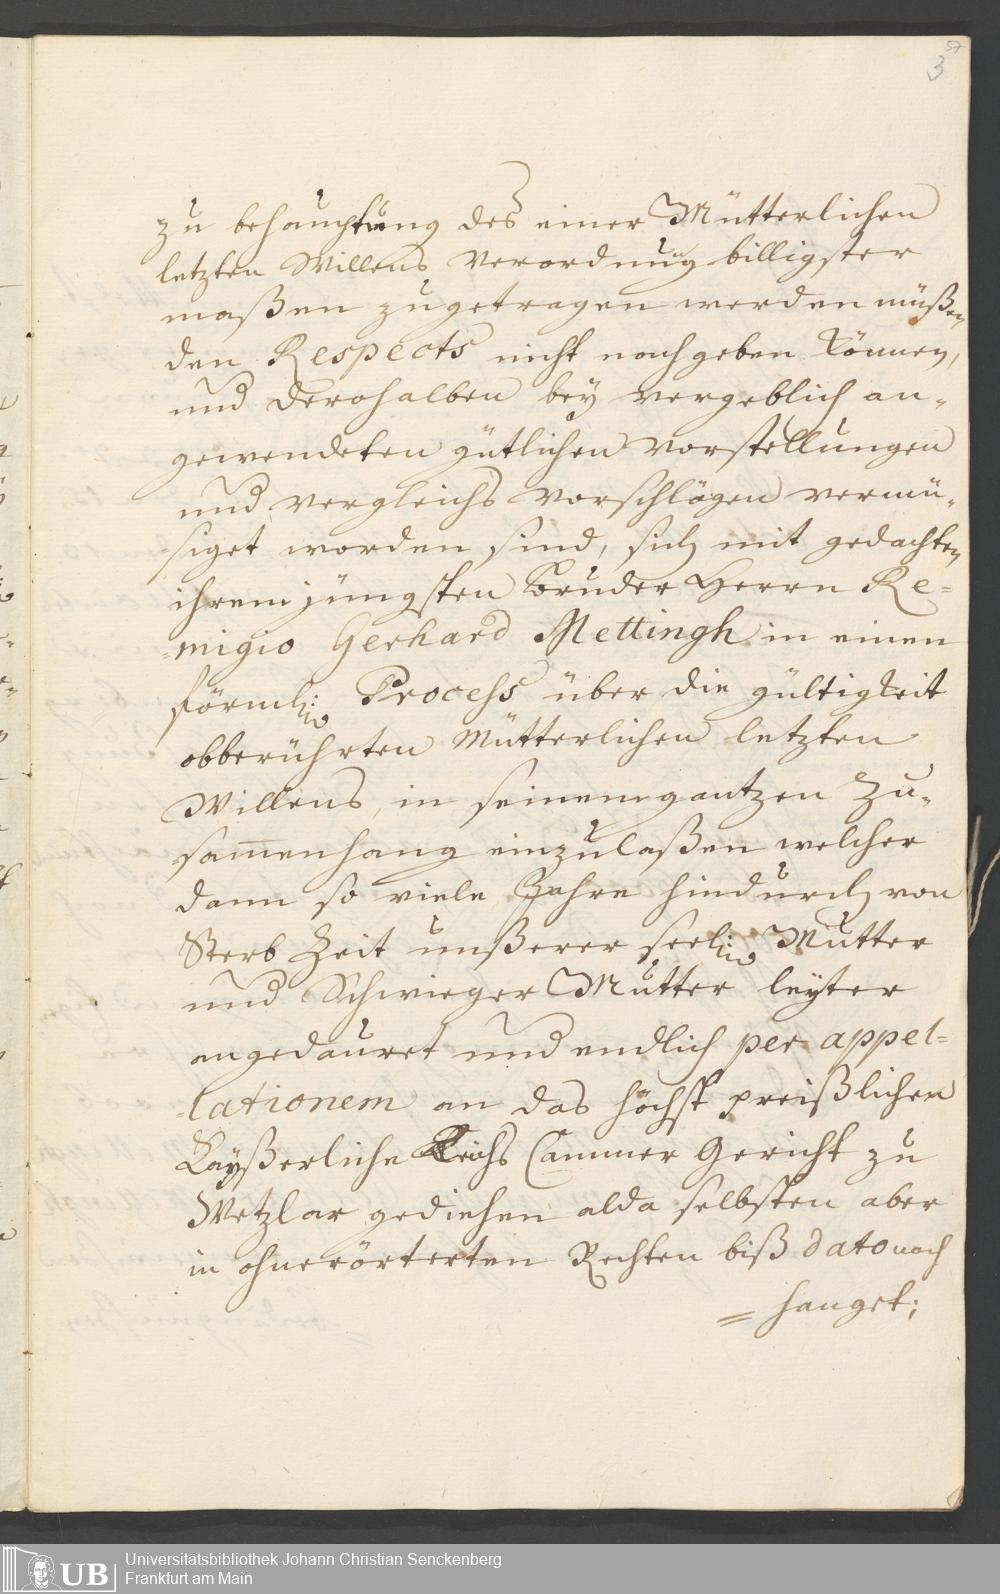 57
3
zu behauptung des einer Mütterlichen
letzten Willens Verordnung billigster
maßen zugetragen werden müßen,
den Respects nicht nachgeben können,
und derohalben bey vergeblich an-
gewendeten gütlichen Vorstellungen
und vergleichs vorschlägen vermü-
siget worden sind, sich mit gedachten
ihrem jüngsten Bruder Herrn Re-
=migio Gerhard Mettingh in einen
förml: Process über die gültigkeit
obberührten Mütterlichen letzten
Willens, in seinem gantzen Zu-
sam̅enhang einzulaßen welcher
dann so viele Jahre hindurch von
Sterb Zeit unßerer seel: Mutter
und Schwieger Mutter leyter
angedauret und endlich per appel=
=lationem an das höchst preißlichen
Kayßerliche Reichs Cammer Gericht zu
Wetzlar gediehen alda selbsten aber
in ohnerörterten Rechten biß dato noch
= hanget;
UB
Universitätsbibliothek Johann Christian Senckenberg
Frankfurt am Main